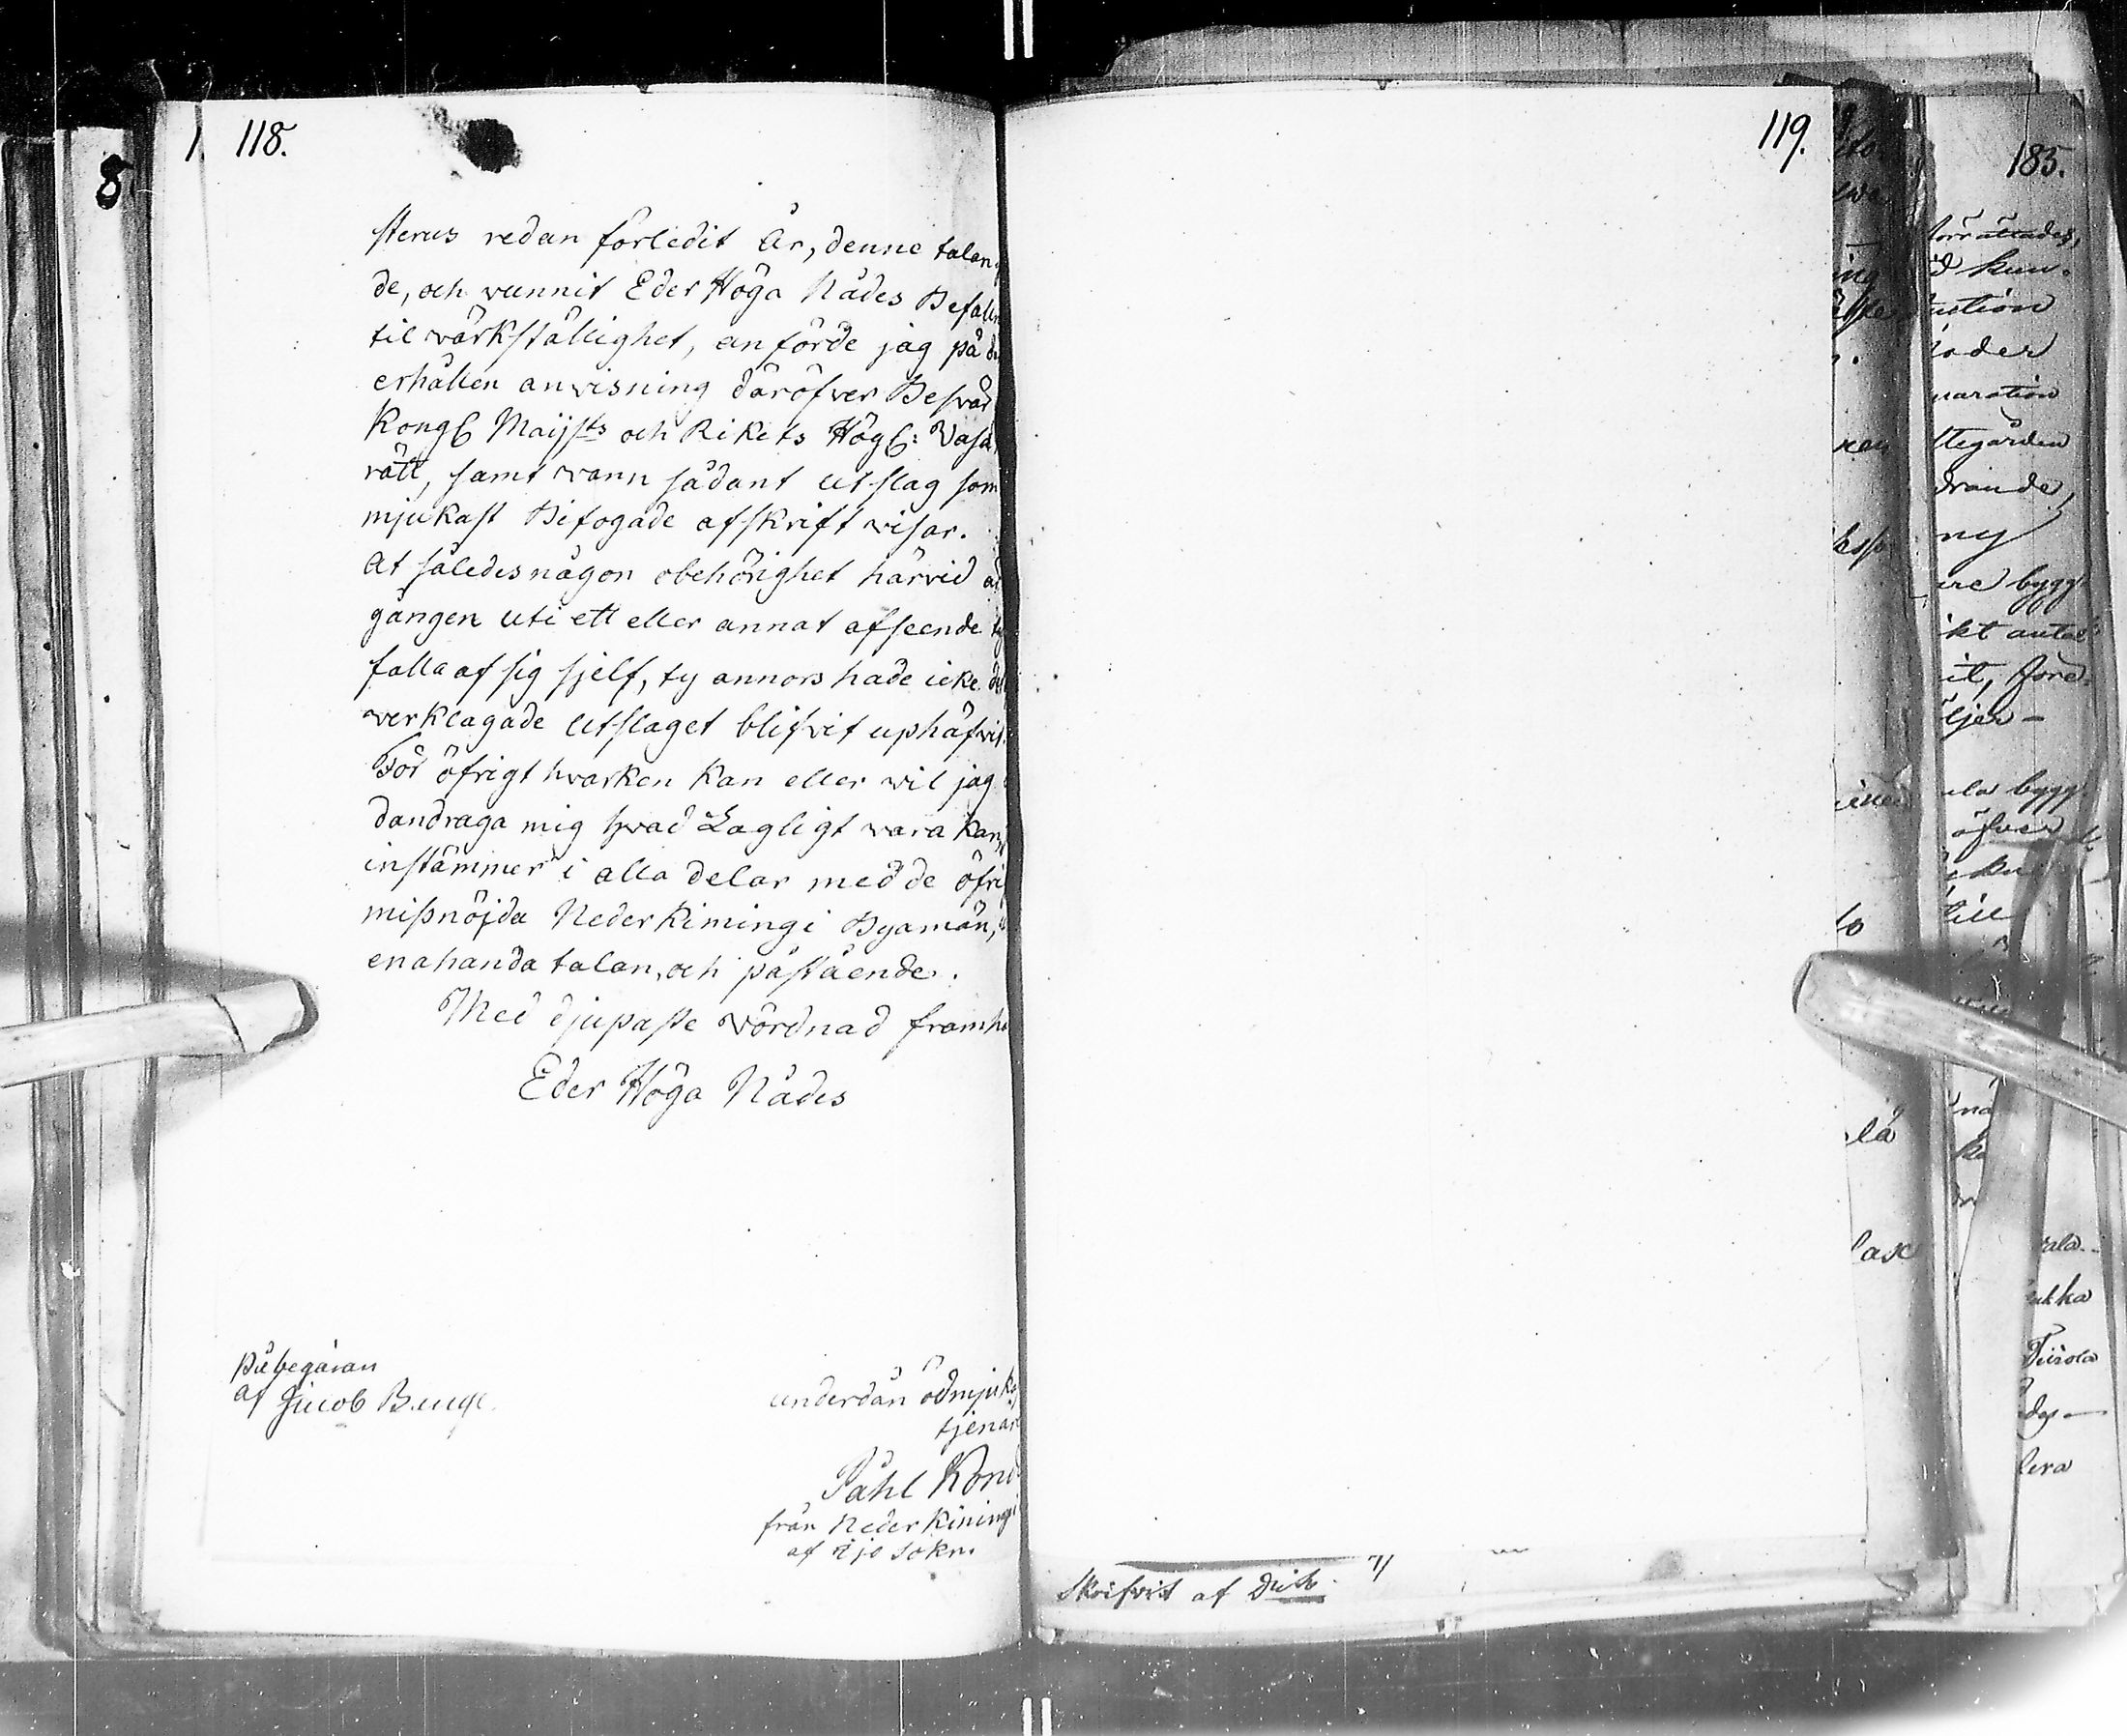 118.
sterus redan förledit År, denne talan
de, och vunnit Eder Höga Nådes Befaln
til värkställighet, anförde jag på
erhållen anvisning däröfver Besvär
Kongl Maijsts och Rikets Högl: Vasa
rätt, samt vann sådant utslag som
mjukast Bifogade afskrift visar.
At således någon obehörighet härvid
gången uti ett eller annat afseende
falla af sig sjelf, ty annors hade icke
verklagade utslaget blifvit uphäfvit.
För öfrigt hvarken kan eller vil jag
dandraga mig hvad Lagligt vara kan,
instämmer i alla delar med de öfri
missnöjda Neder Kimingi Byamän,
enahanda talan, och påstående.
Med djupaste vördnad framh
Eder Höga Nådes
På begäran
af Jacob
underdån ödmjuk
tjenar
Påhl
från Neder Kimingi
af Ijo Sokn.
119.
Skrifvit af
185.
förrättades,
kun
uction
oder
uaration
ttegården
drande,
ny
are bygg
ikt antal
it, före
ljer-
ela bygg
öfver
till
la
ala
ukka
lera